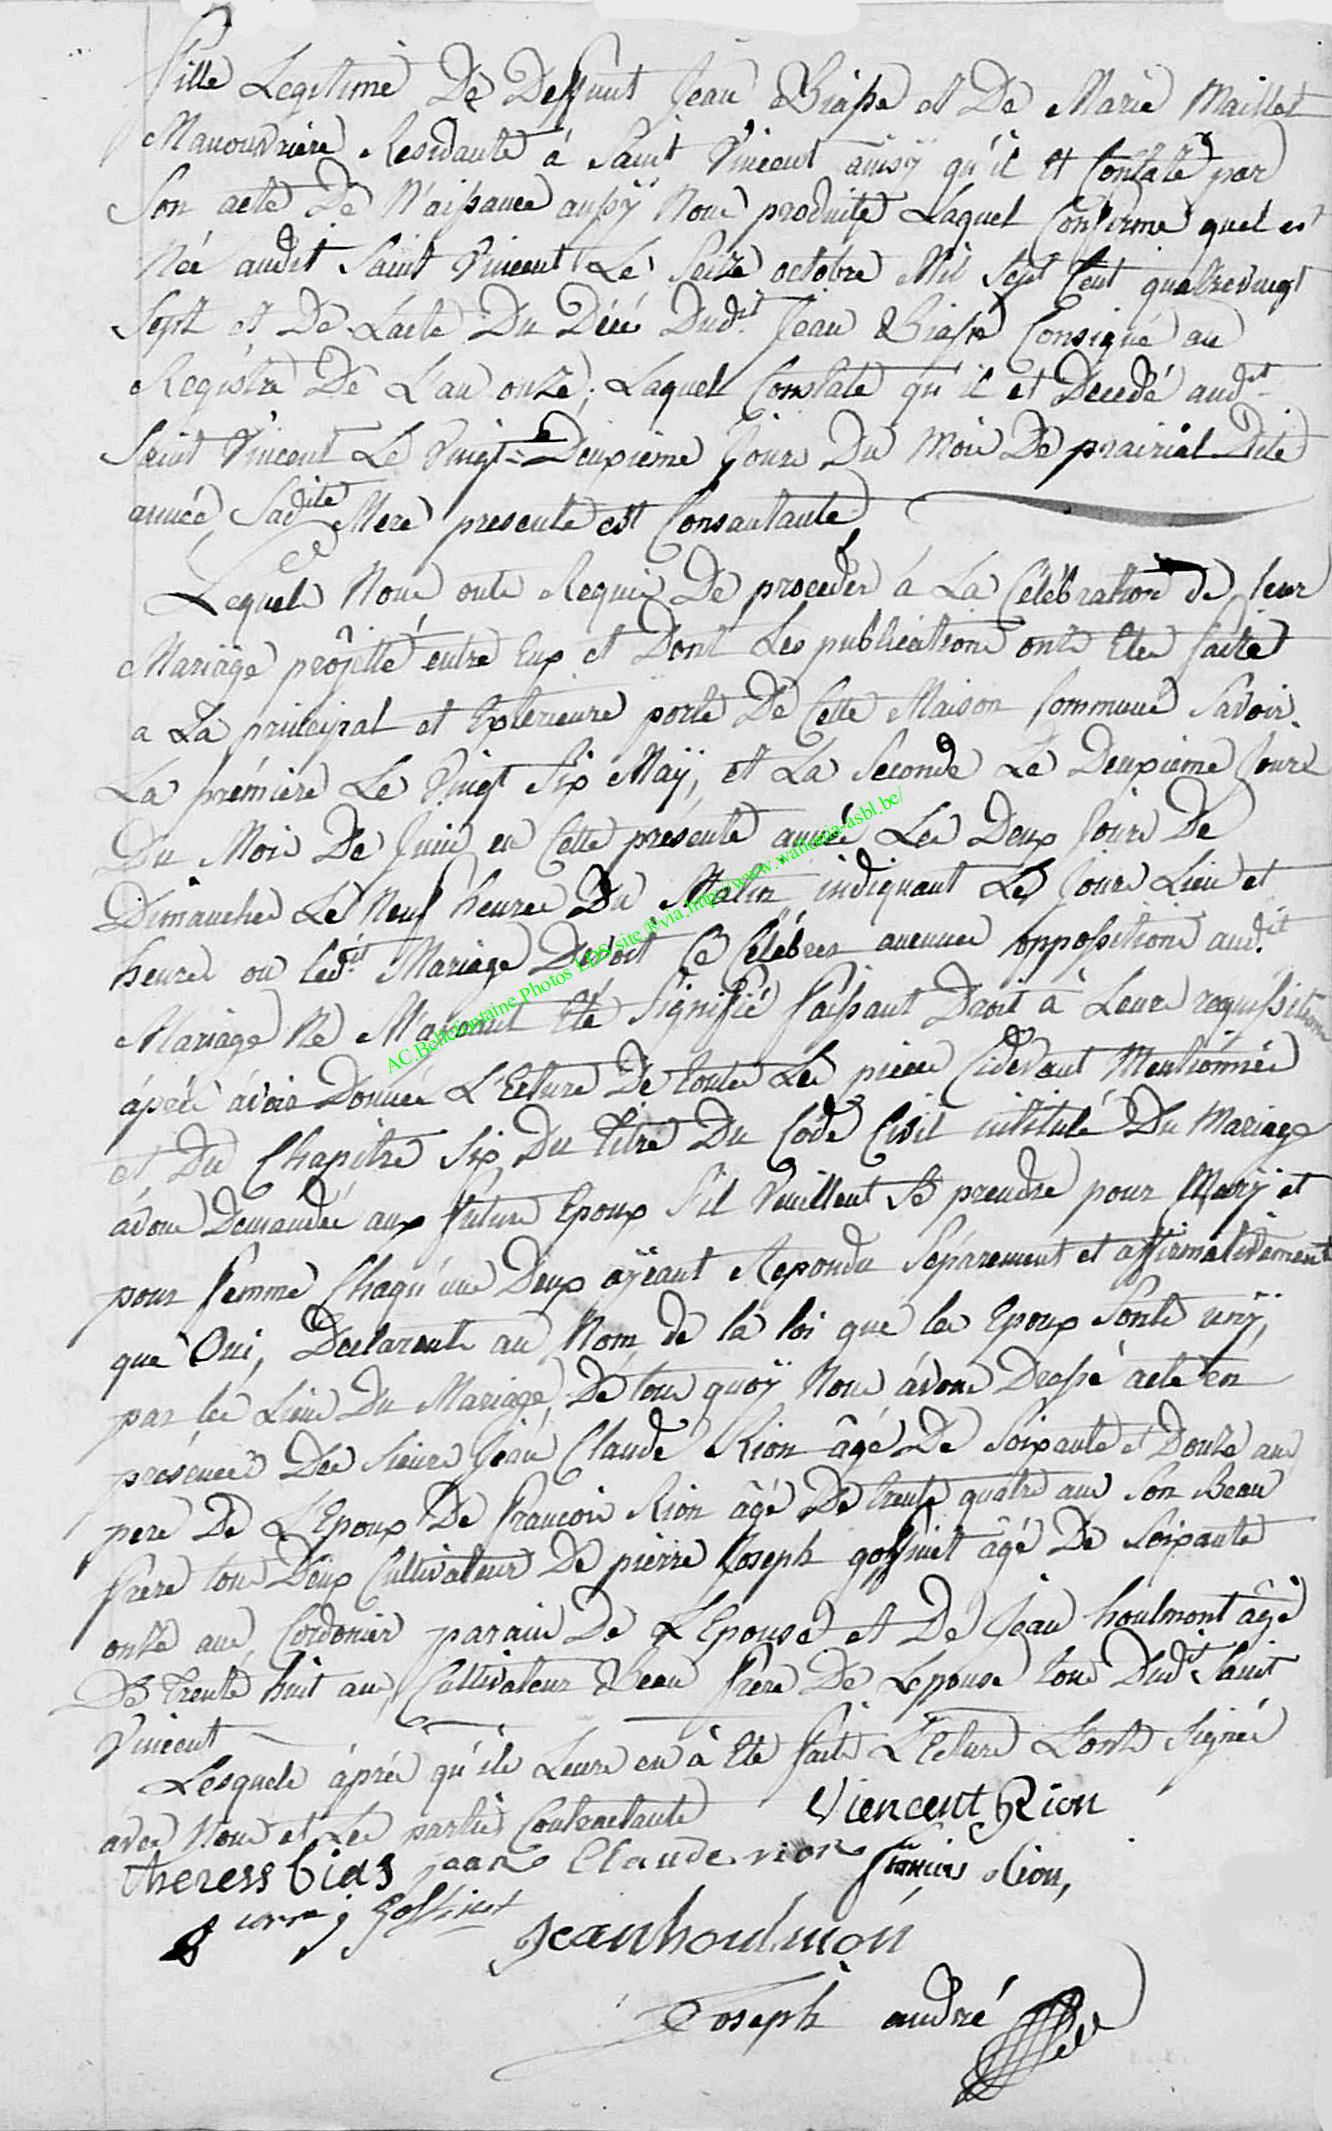 Fille Legitime De Deffunt Jean Biasse et De Marie Maillet
Manouvriere Residante á Saint Vincent ainsÿ qu'il et Constate par
Son acte De N'aissance aussÿ Nous produite Laquel Confirme quel est
Née audit Saint Vincent Le Seize octobre Mil Sept Cent quatrevingt
Sept et De L'acte Du Décé Dudit Jean Biasse Consigné au
Registre De L'an onze, Laquel Constate qu'il et Decedé audit
Saint Vincent Le Vingt=Deuxieme Jour Du Mois De prairial Dite
année, Sadite Mere presente est Consantante
Lequels Nous onts Requis De proceder á La Célébration de leur
Mariage projetté entre Eux et Dont Les publications onts Etes faite
a La principal et Exterieure porte De Cette Maison Commune Savoir.
La premiere Le Vingt Six Maÿ, et La Seconde Le Deuxieme Jours
Du Mois De Juin en Cette presente année Les Deux Jours De
Dimanches Le Neuf heures Du Matin indiquant Les Jours Lieu et
heures ou ledit Mariage Devoit Ce Celébrer aucunes oppositions audit
Mariage Ne N'aÿant Eté Signifié faissant Droit à Leure requissitions
áprés ávoir Donnée L'Ecture De toutes Les pieces Cidevant Mentionnées
et Du Chapitre Six Du Titre Du Code Civil intitulé Du Mariage
ávons Demandée aux futurs Epoux S'il Veuillent Se prendre pour Marÿ et
pour femme Chaqu'un Deux aÿeant Repondu Séparement et affirmativement
que Oui, Declarants au Nom de la loi que les Epoux Sonts unÿ,
par les Liens Du Mariage, De tous quoÿ Nous ávons Dressé acte en
présences Des Sieurs Jean Claude Rion âgé De Soixante et Douze ans
pere De L'Epoux De francois Rion âgé De trente quatre ans Son Beau
frere tous Deux Cultivateur De pierre Joseph goffinet âgé De Soixante
onze ans Cordonier parain De L'Epouse et De Jean houlmont âgé
De Trente huit ans Cultivateur Beau frère De Lepouse tous Dudit Saint
Vincent
Lesquels áprés qu'ils Leurs en à Eté fait L'Ecture L'onts Signés
avec Nous et Les parties Contractante Viencent Rion
theress bias jean Claude rion francois Rion,
pierre j Goffinet
Jean houlmon
Joseph andré
AC.Bellefontaine.Photos EDS site @via.http//www.wallonia-asbl.be/